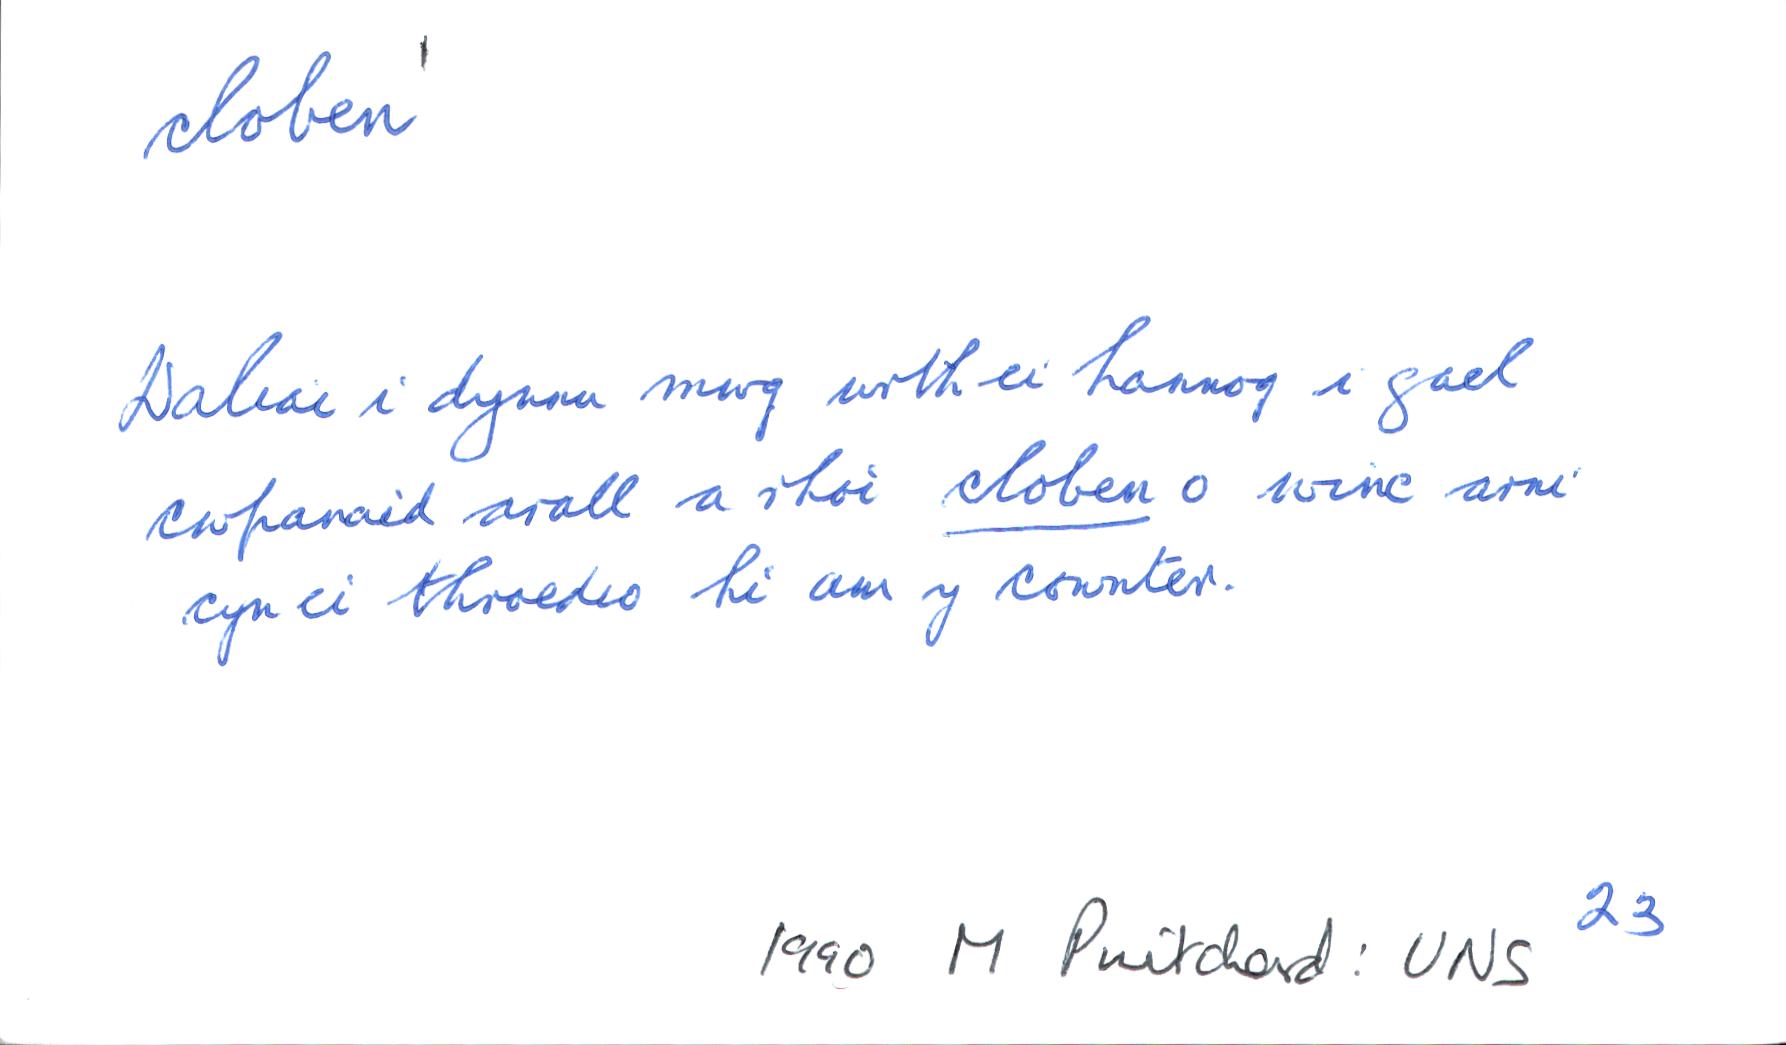 cloben'
Daliai i dynnu mwg wrth ei hannog i gael
cwpanaid arall a rhoi cloben o winc arni
cyn ei throedio hi am y cownter.
1990 M Pritchard: UNS 23